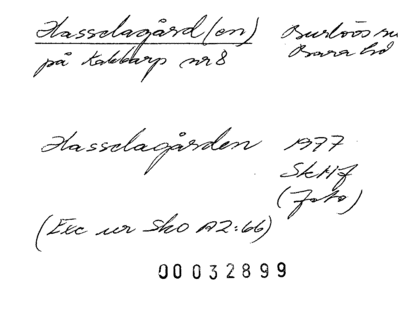 Hasslagård(en) Burlövs
på Kabbarp nr 8 Bara hd
Hasslagården 1977
SkHf
(foto)
(Exc ur SkO A2:66)
00032899